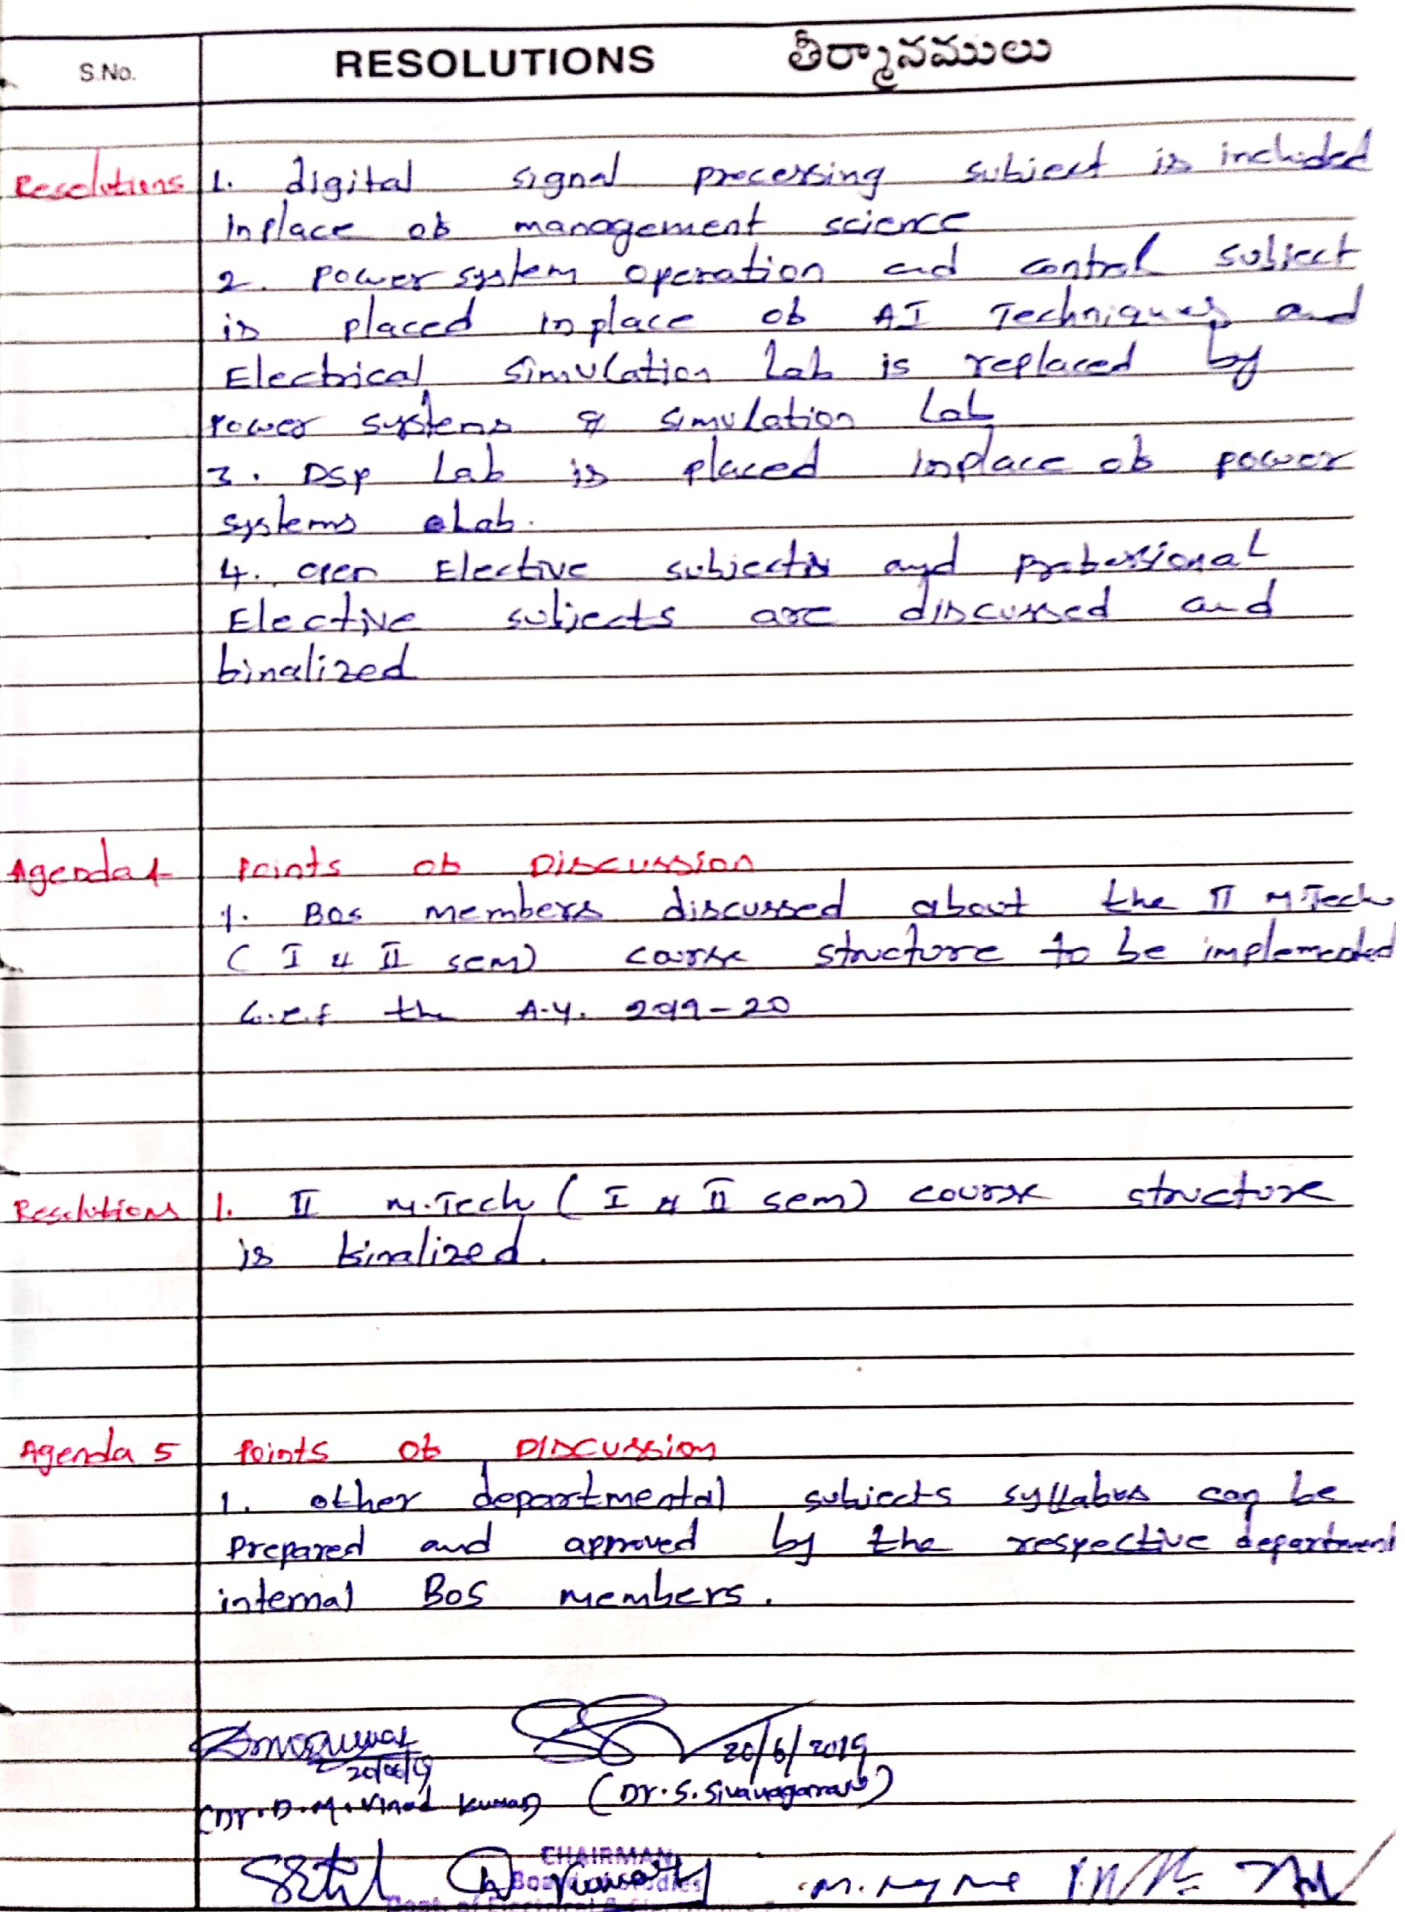 S.No. RESOLUTIONS తీర్మానములు
Resolutions 1. digital signal processing subject is included
Inplace of management science
2. power system operation and control subject
is placed inplace of AI Techniques and
Electrical simulation Lab is replaced by
Power systems & simulation Lab
3. DSP Lab is placed inplace of power
systems Lab.
4. open Elective subjects and professional
Elective subjects are discussed and
finalized
Agenda 4 Points of Discussion
1. Bos members discussed about the II M.Tech
( I & II sem) course structure to be implemented
w.e.f the A.Y. 2019-20
Resolutions 1. II M.Tech ( I & II sem) course structure
is finalized.
Agenda 5 Points of Discussion
1. other departmental subjects syllabus can be
prepared and approved by the respective department
internal BOS members.
20/06/19 20/6/2019
(Dr. D.M. Vinod Kumar) (Dr. S. Sivanagaraju)
CHAIRMAN
Board of Studies
Dept. of Electrical &